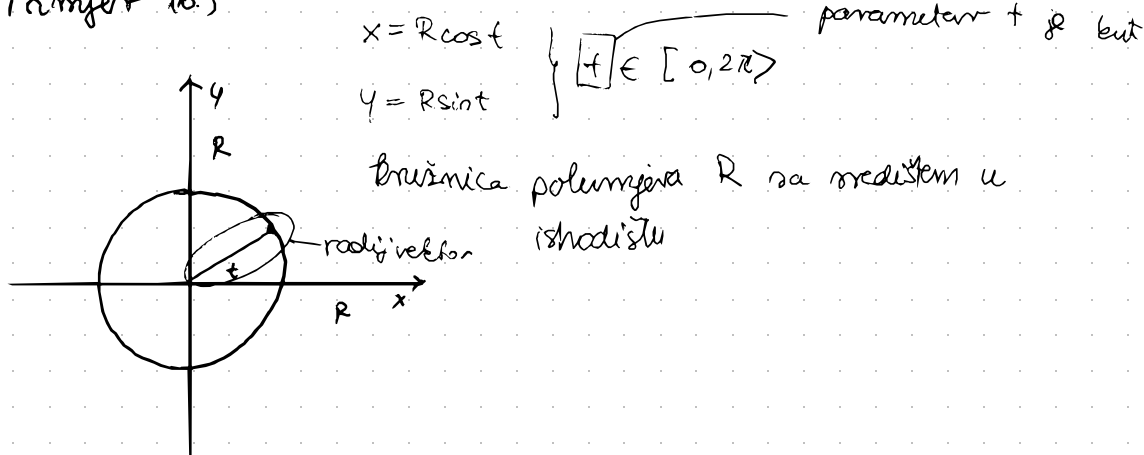 Primjer 10.)
x = Rcost
y = Rsint
} t ∈ [0,2π>
parametar t je kut
kružnica polumjera R sa središtem u
ishodištu
y
R
radijvektor
t
R
x